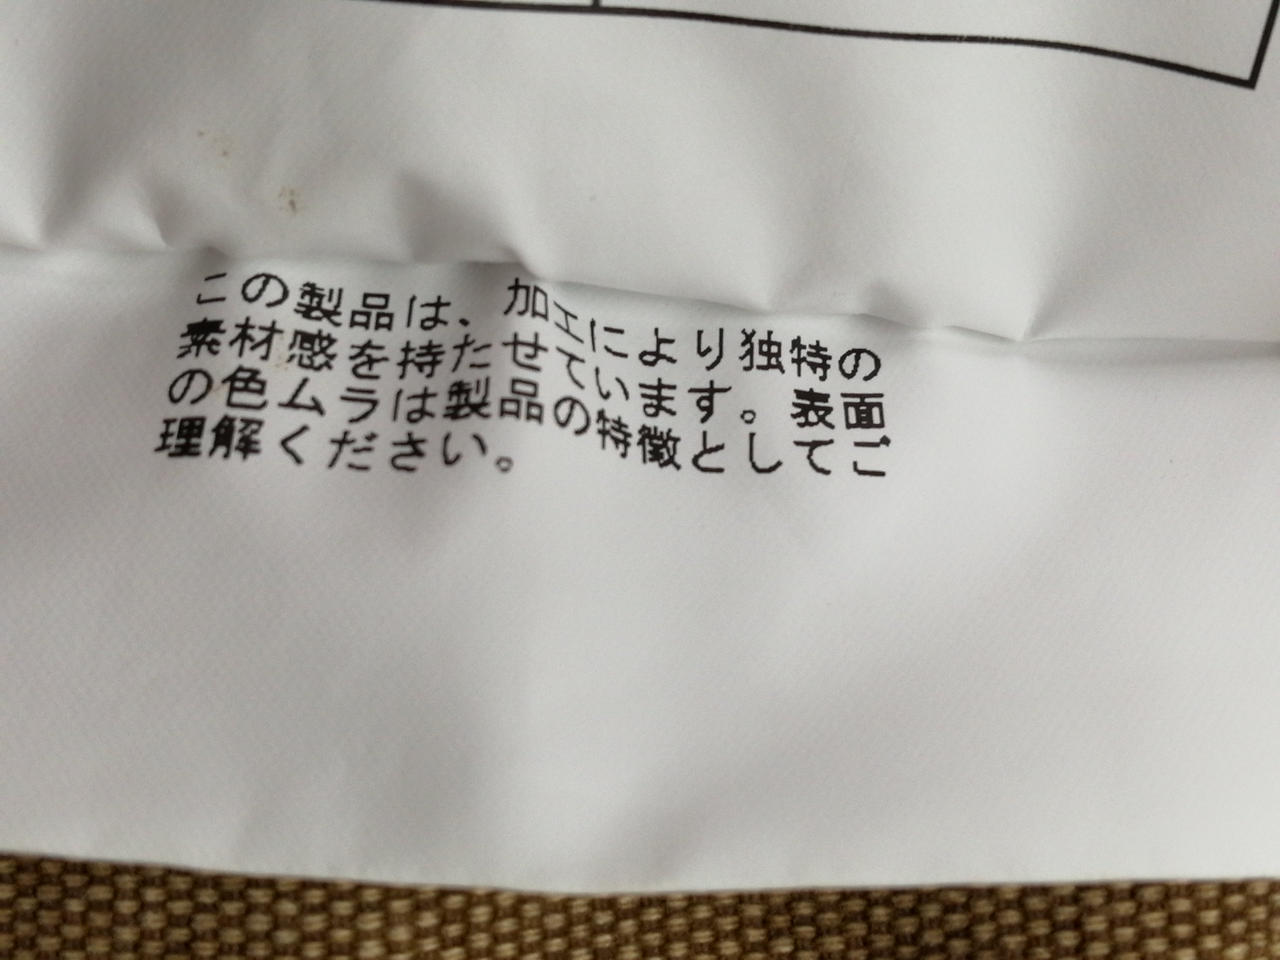 この製品は、加工により独特の
素材感を持たせています。表面
の色ムラは製品の特徴としてご
理解ください。